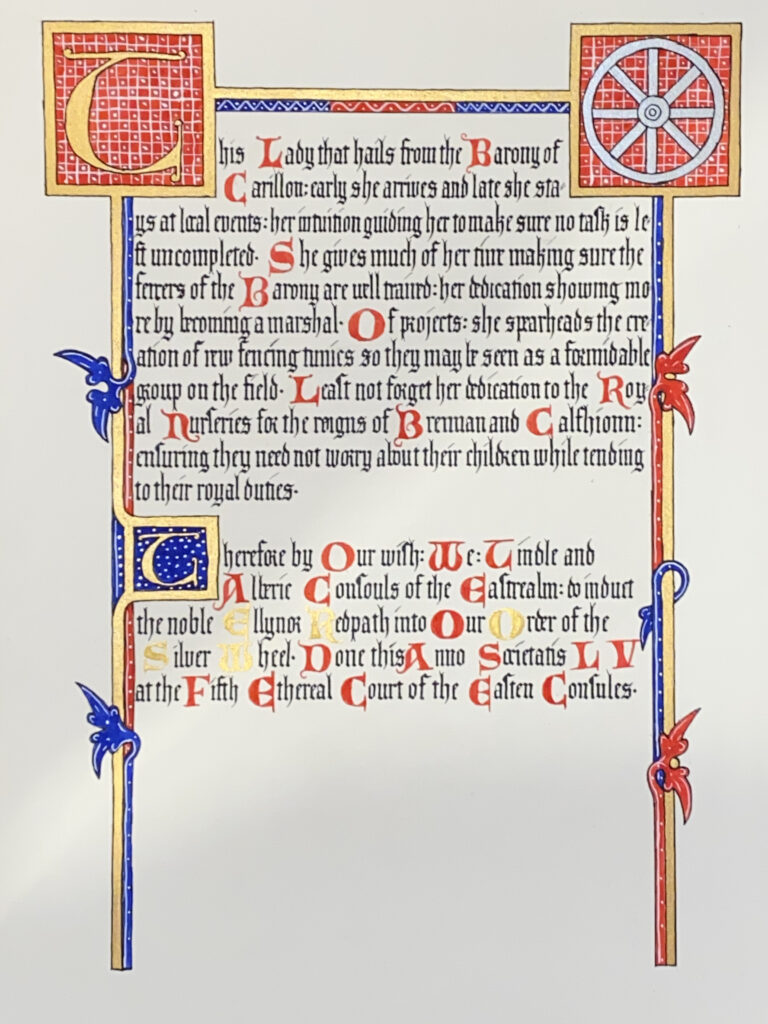 This Lady that hails from the Barony of
Carillon: early she arrives and late she sta-
ys at local events: her intuition guiding her to make sure no task is le-
ft uncompleted. She gives much of her time making sure the
fencers of the Barony are well trained: her dedication showing mo
re by becoming a marshal. Of projects: she sparheads the cre-
ation of new fencing tunics so they may be seen as a formidable
group on the field. Least not forget her dedication to the Roy-
al Nurseries for the reigns of Brennan and Caelfhionn:
ensuring they need not worry about their children while tending
to their royal duties.
Therefore by Our wish: We: Tindle and
Alberic Consouls of the Eastrealm: do induct
the noble Ellynor Redpath into Our Order of the
Silver Wheel. Done this Anno Societatis LV
at the Fifth Ethereal Court of the Easten Consules.